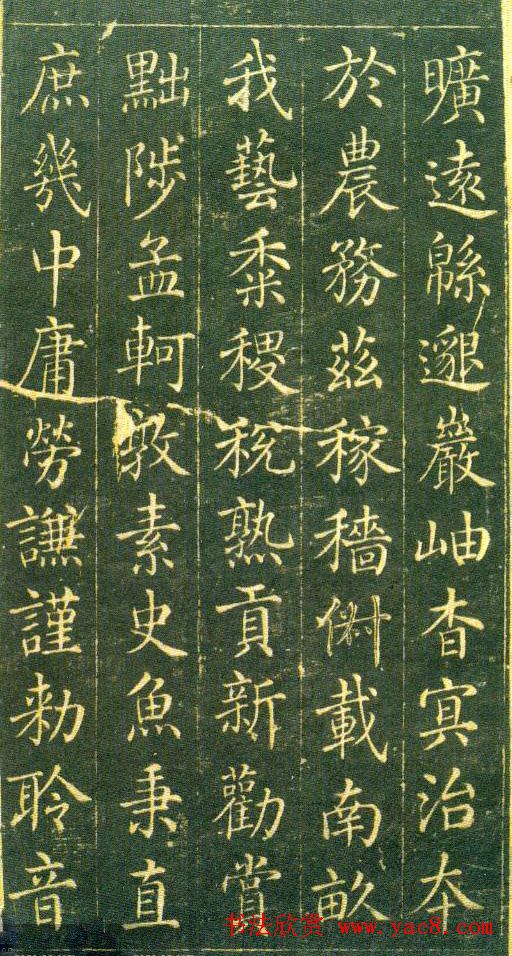 曠遠緜邈巖岫杳冥治本
於農務茲稼穡俶載南畝
我藝黍稷稅熟貢新勸賞
黜陟孟軻敦素史魚秉直
庶幾中庸勞謙謹勅聆音
书法欣赏 www.yac8.com